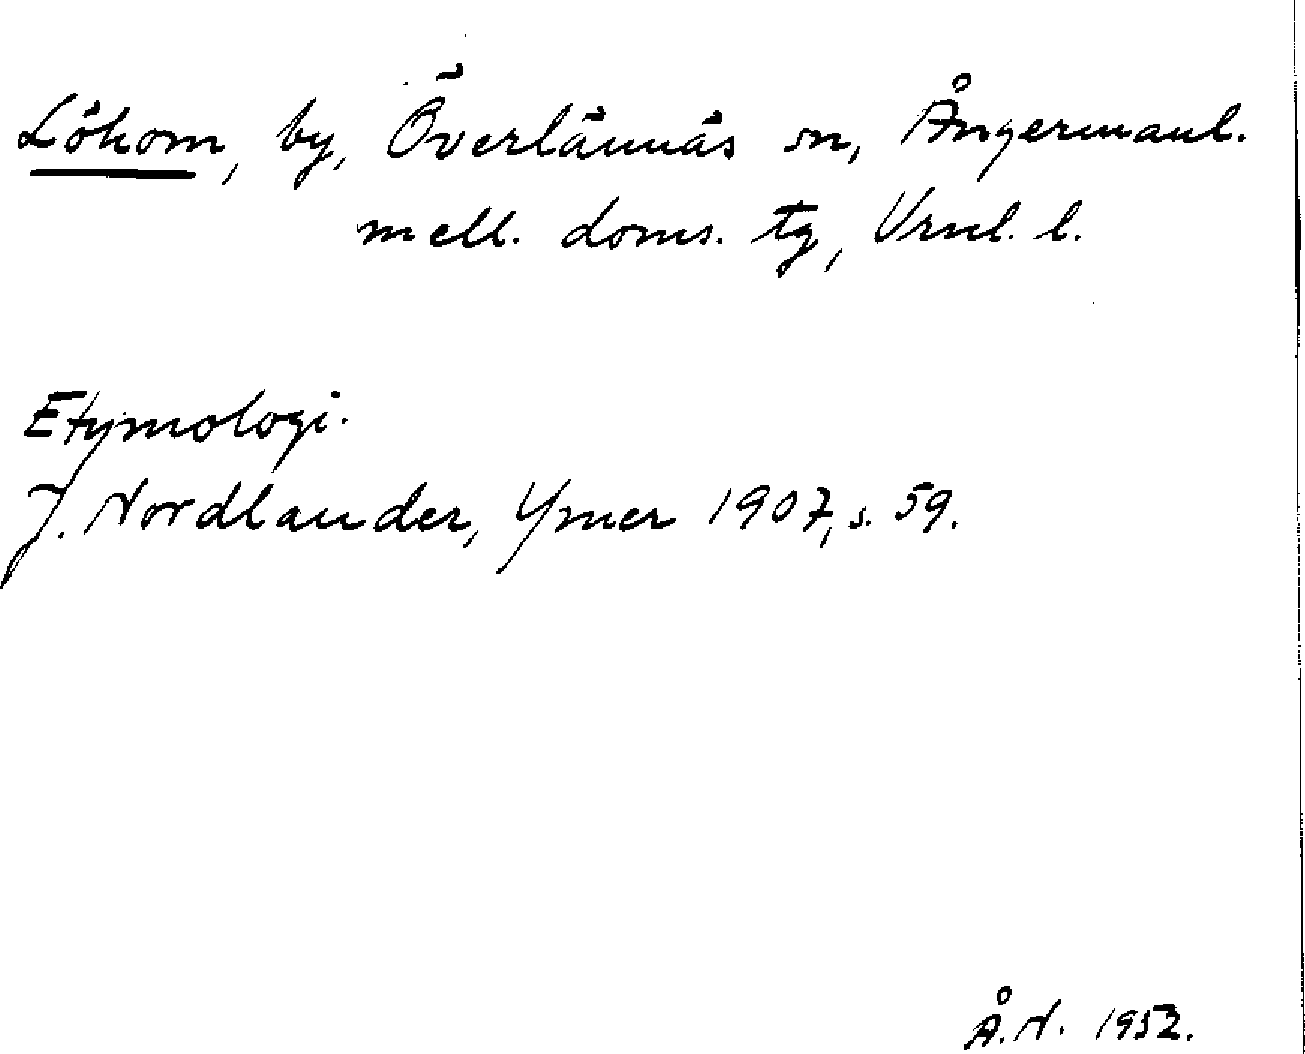 Löhom, by, Överlännäs sn, Ångermanl.
mell. doms. tg, Vrnl. l.
Etymologi.
J. Nordlander, Ymer 1907, s. 59.
Å.N. 1952.